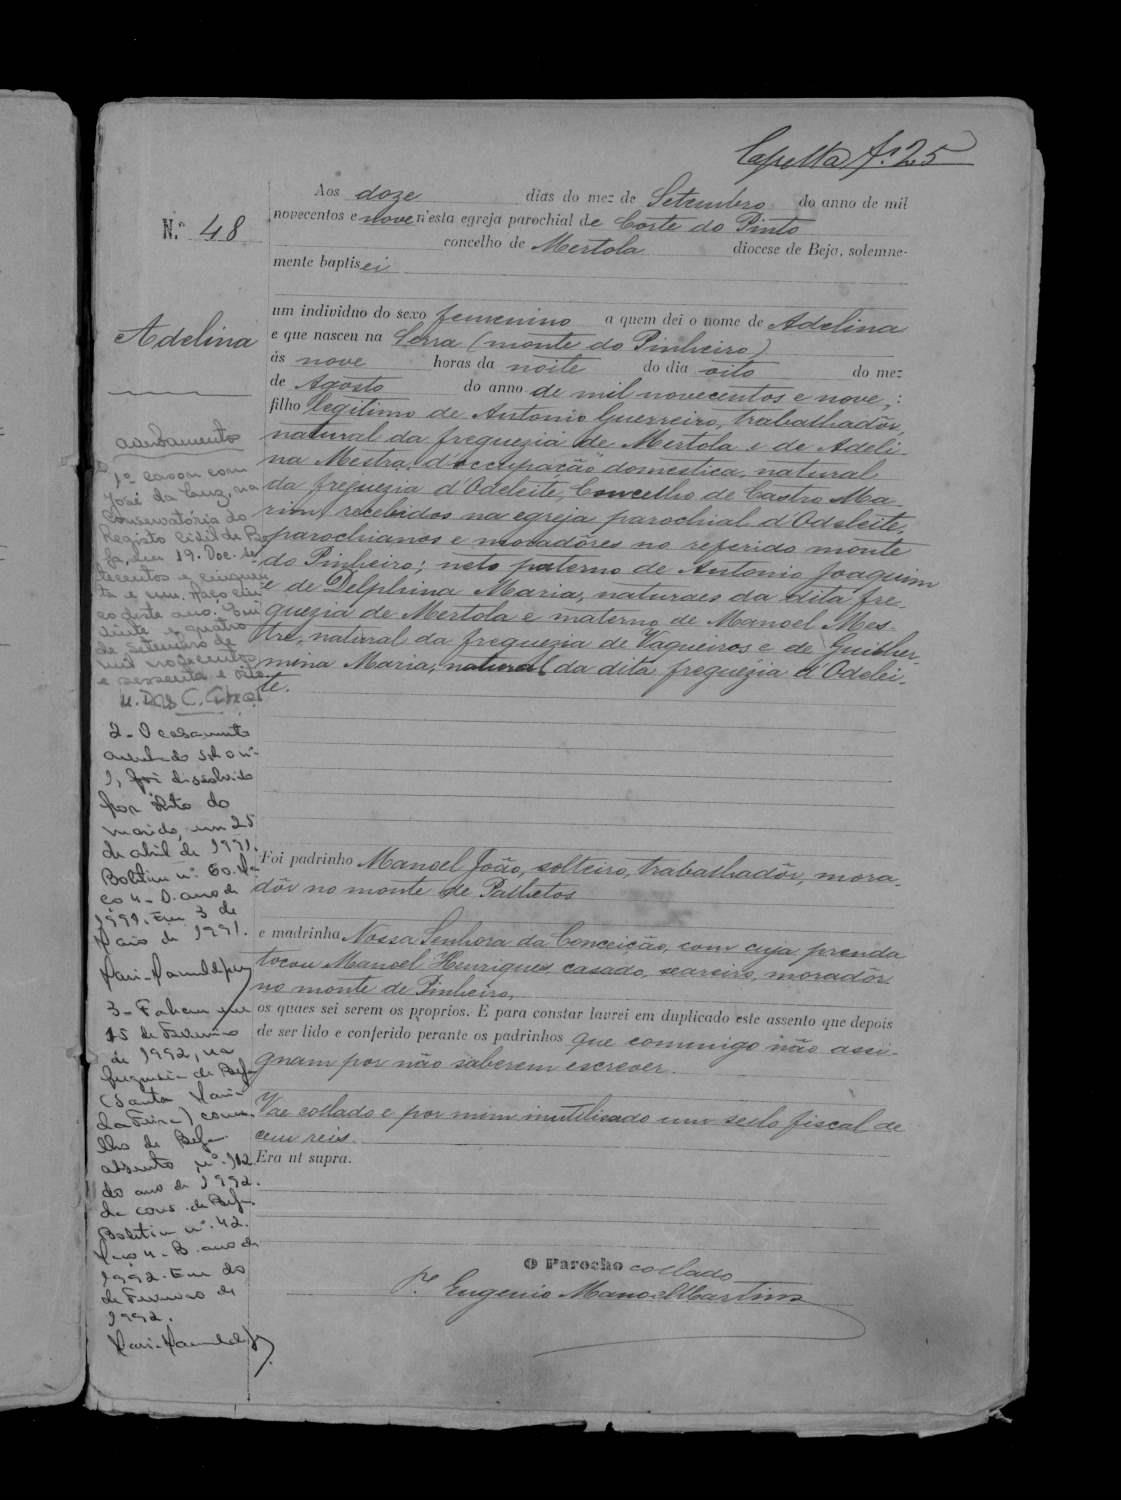 fs. 25
N.º 48
Adelina
Aos doze dias do mez de Setembro do anno de mil
novecentos e nove n'esta egreja parochial de Corte do Pinto
concelho de Mertola diocese de Beja, solemne-
mente baptisei
um individuo do sexo femenino a quem dei o nome de Adelina
e que nasceu na Serra (monte do Pinheiro)
ás nove horas da noite do dia oito do mez
de Agosto do anno de mil novecentos e nove,:
filho legitimo de Antonio Guerreiro, trabalhadôr,
natural da freguezia de Mertola e de Adeli-
na Mestra, d'occupação domestica, natural
da freguezia d'Odeleite, Concelho de Castro Ma-
rim, recebidos na egreja parochial d'Odeleite,
parochianos e moradôres no referido monte
do Pinheiro; neto paterno de Antonio Joaquim
e de Delphina Maria, naturaes da dita fre-
guezia de Mertola e materno de Manoel Mes-
tre, natural da freguezia de Vaqueiros e de Guilher-
mina Maria, natural da dita freguezia d'Odelei-
te.
Foi padrinho Manoel João, solteiro, trabalhadôr, mora-
dôr no monte de Palhetos
e madrinha Nossa Senhora da Conceição, com cuja prenda
tocou Manoel Henriques casado, seareiro, moradôr
no monte de Pinheiro,
os quaes sei serem os proprios. E para constar lavrei em duplicado este assento que depois
de ser lido e conferido perante os padrinhos que commigo não assi-
gnam por não saberem escrever.
Vae collado e por mim inutilisado um sello fiscal de
cem reis.
Era ut supra.
O Parocho collado
P.e Eugenio Manoel Martins
averbamentos
1º casou com
José da Luz, na
Conservatória do
Registo Civil de Be-
ja, em 19. Dec.
e quatro
de setembro de
mil novecentos
e sessenta e
2 - O casamento
averbado sob o nº
1, foi dissolvido
por óbito do
marido, em 25
de abril de 1991.
Boletim nº 60. Ma-
ço 4 - D. ano de
1991. Em 3 de
Maio de 1991.
3 - Faleceu em
15 de Fevereiro
de 1992, na
freguesia de Beja
(Santa Maria
da Feira) conce-
lho de Beja
assento nº. 112
do ano de 1992.
da cons. de Beja.
Boletim nº. 42.
Maço 4 - B ano de
1992. Em
de Fevereiro de
1992.